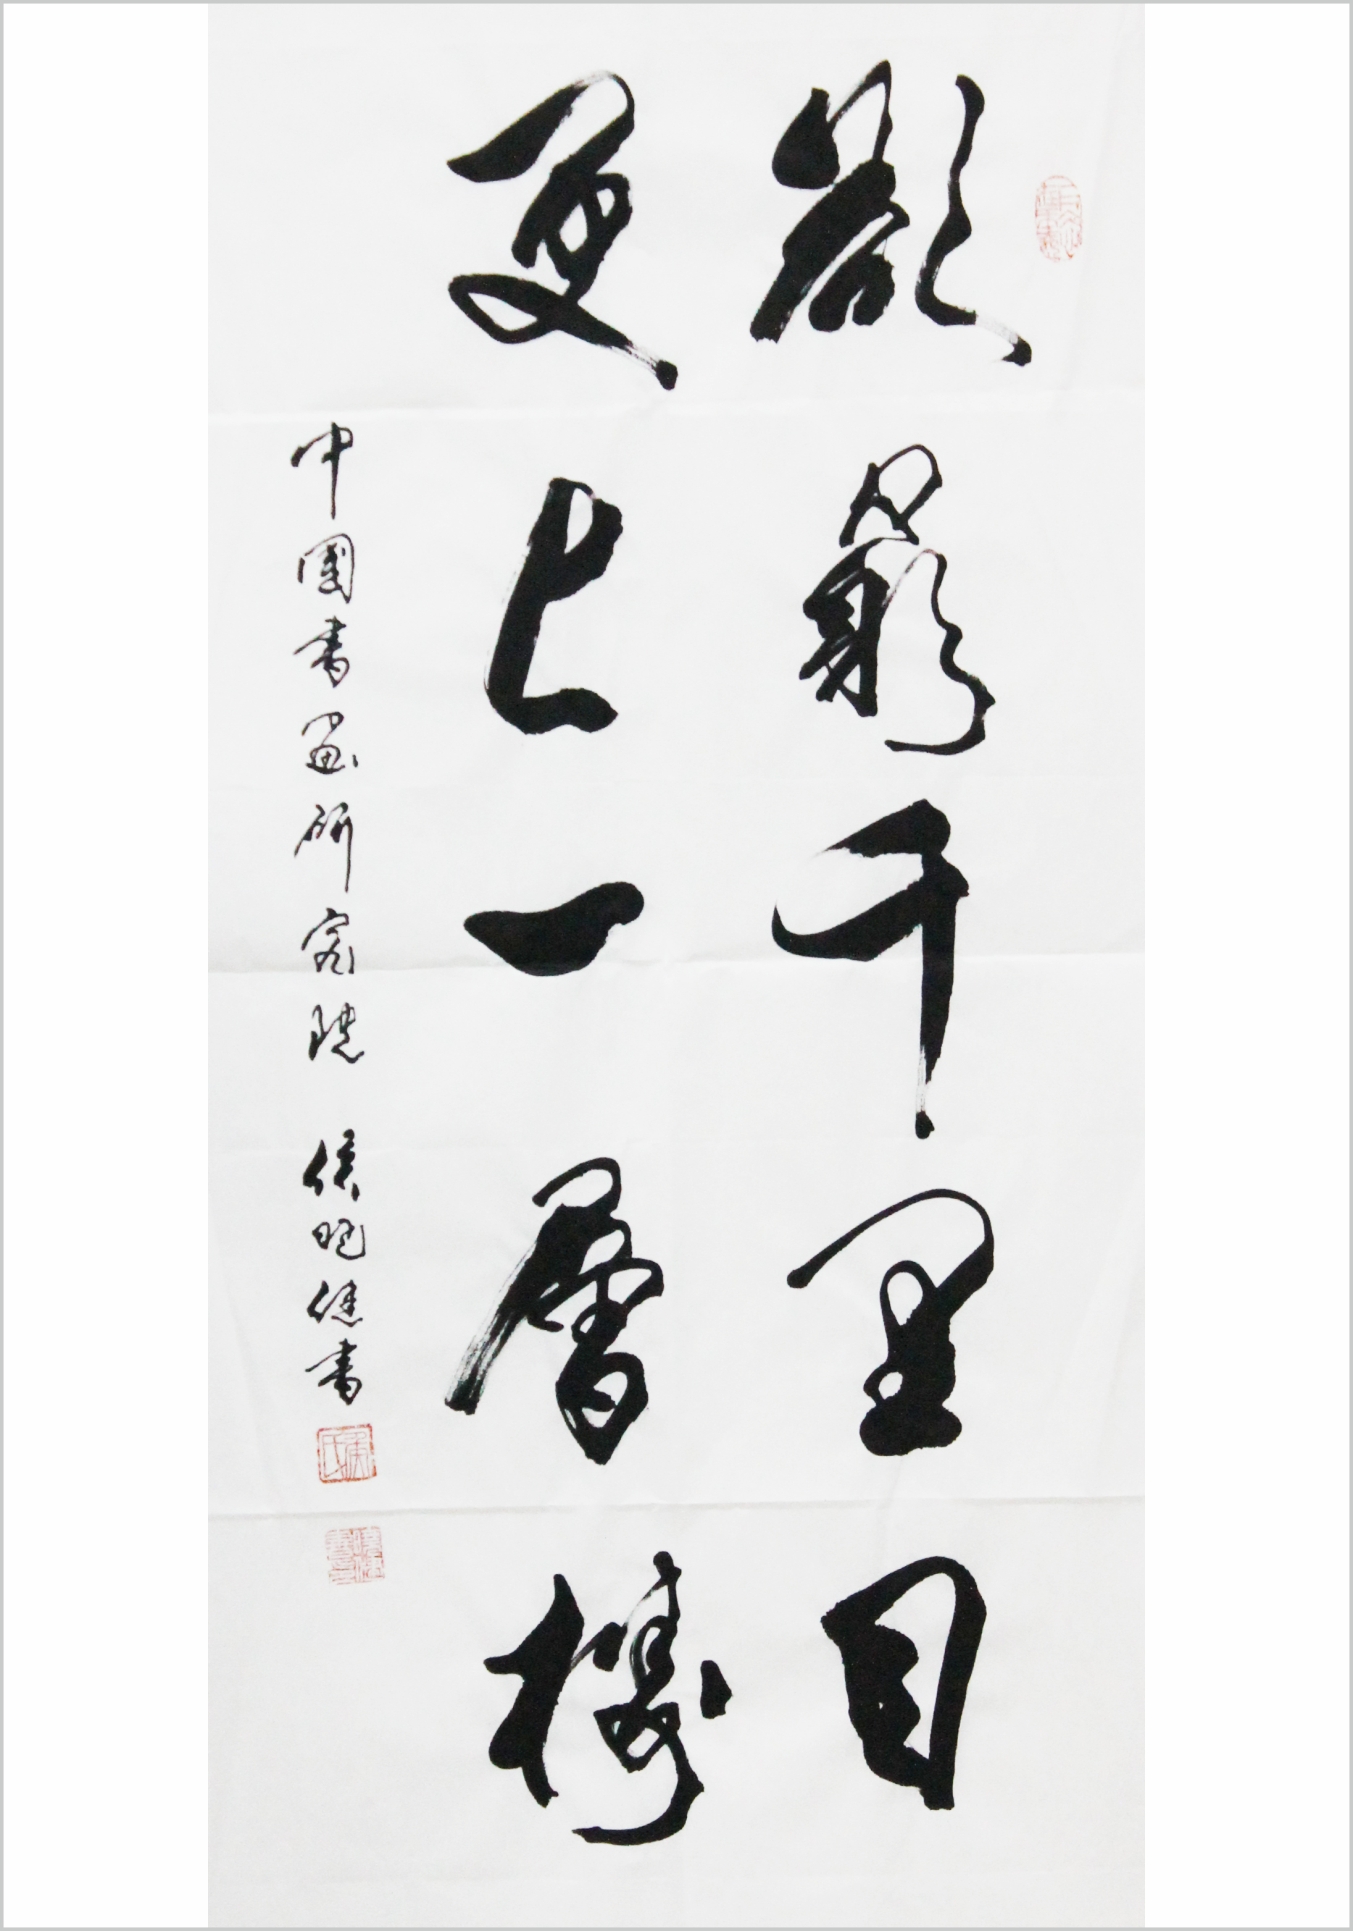 欲穷千里目
更上一層楼
中國书画研究院 侯晓健书
侯氏